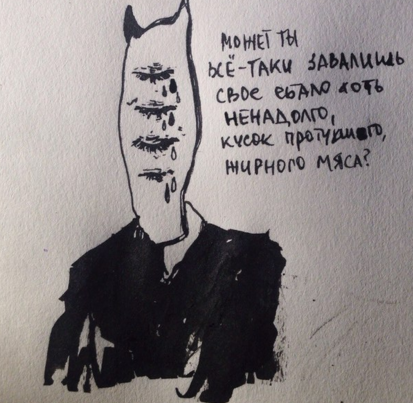 МОЖЕТ ТЫ
ВСЁ-ТАКИ ЗАВАЛИШЬ
СВОЕ ЕБАЛО ХОТЬ
НЕНАДОЛГО,
КУСОК ПРОТУХШЕГО,
ЖИРНОГО МЯСА?